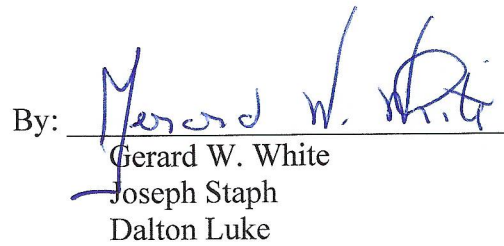 By: Gerard W. White
Gerard W. White
Joseph Staph
Dalton Luke